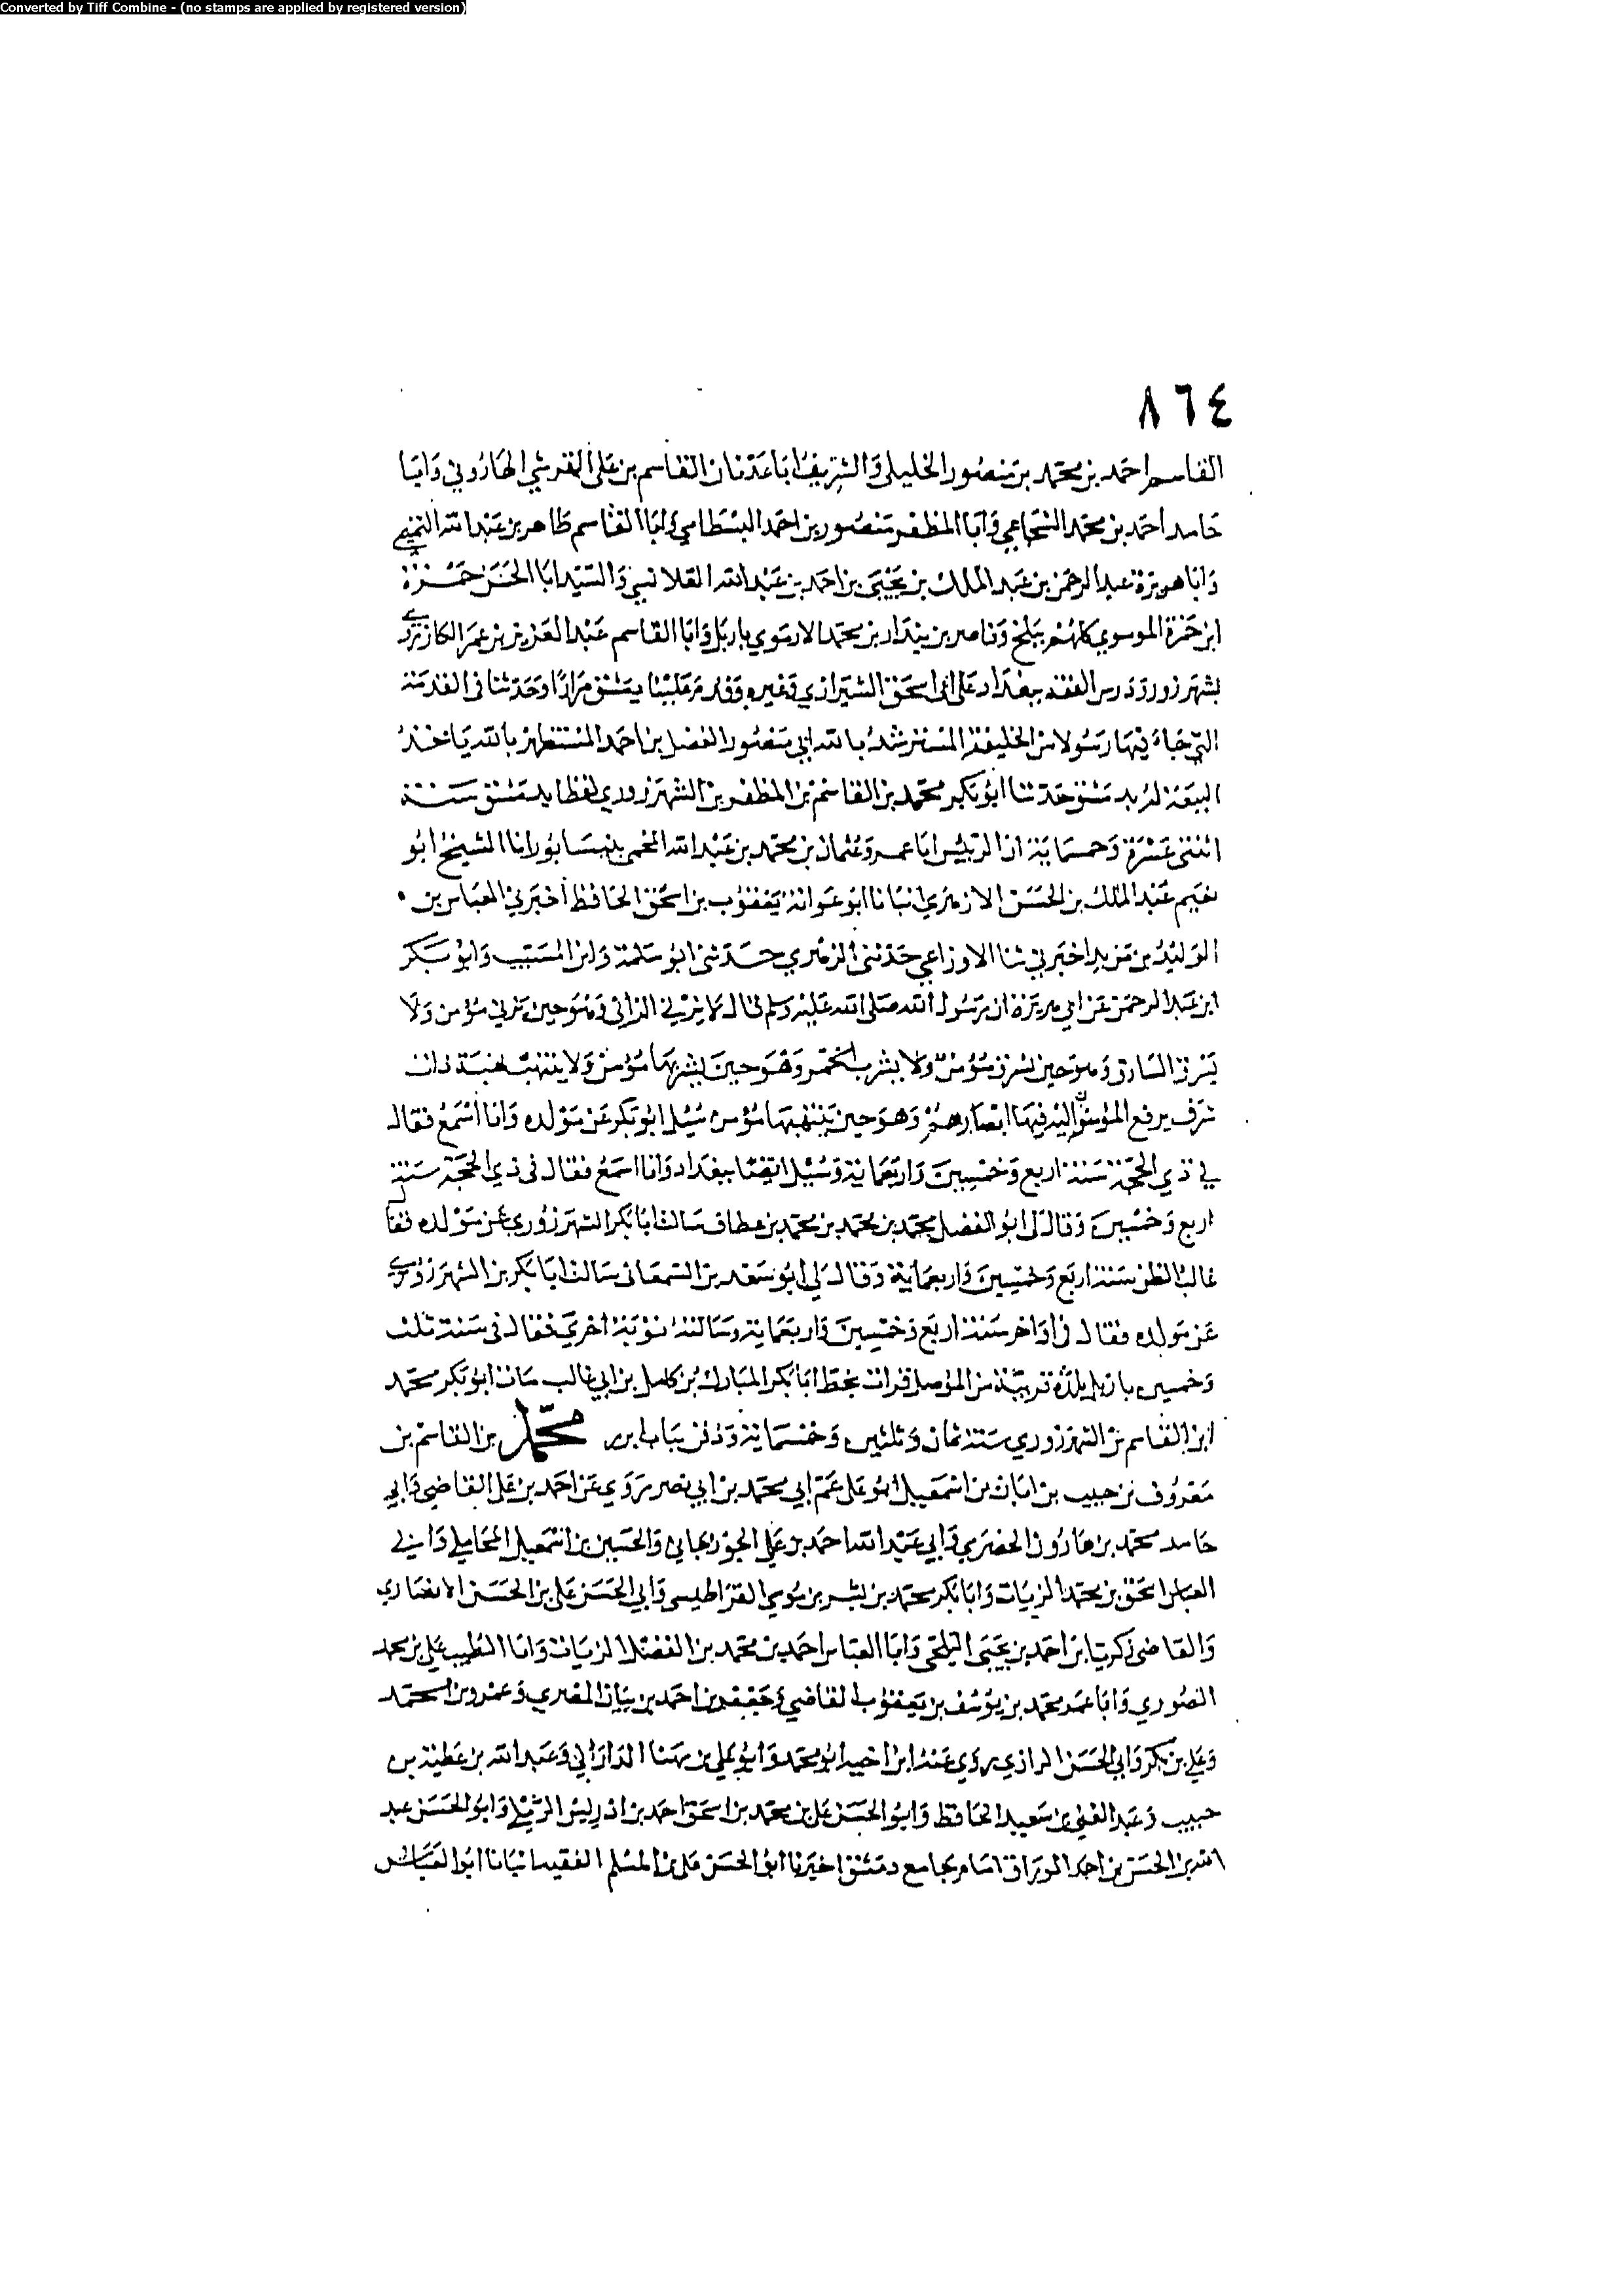 Converted by Tiff Combine - (no stamps are applied by registered version)
٨٦٤
القاسم احمد بن محمد بن منصور الخليلي والشريف ابا عدنان القاسم بن على القرشي الهاروني وابا
حامد احمد بن محمد الشجاعي وابا المظفر منصور بن احمد البسطامي وابا القاسم طاهر بن عبد الله التميمي
وابا هريرة عبد الرحمن بن عبد الملك بن يحيى بن احمد بن عبد الله القلانسي والسيد ابا الحسن حمزة
ابن حمزة الموسوي كلهم ببلخ وناصر بن بندار بن محمد الارموي باربل وابا القاسم عبد العزيز بن عمر الكازروني
بشهرزور ودرس الفقه ببغداد على ابي اسحق الشيرازي وغيره وقدم علينا دمشق مرارا وحدثنا في القدمة
التي جاء فيها رسولا من الخليفة المسترشد بالله ابي منصور الفضل بن احمد المستظهر بالله ياخذ
البيعة له بدمشق حدثنا ابو بكر محمد بن القاسم بن المظفر بن الشهرزوري لفظا بدمشق سنة
اثنتي عشرة وخمسماية انا الرييس ابا عمرو عثمان بن محمد بن عبد الله المحمي بنيسابور انا الشيخ ابو
نعيم عبد الملك بن الحسن الازهري انبانا ابو عوانة يعقوب بن اسحق الحافظ اخبرني العباس بن
الوليد بن مزيد اخبرني ثنا الاوزاعي حدثني الزهري حدثني ابو سلمة وابن المسيب وابو بكر
ابن عبد الرحمن عن ابي هريرة ان رسول الله صلى الله عليه وسلم قال لا يزني الزاني وهو حين يزني مؤمن ولا
يسرق السارق وهو حين يسرق مؤمن ولا يشرب الخمر وهو حين يشربها مؤمن ولا ينتهب نهبة ذات
شرف يرفع المؤمنون اليه فيها ابصارهم وهو حين ينتهبها مؤمن سئل ابو بكر عن مولده وانا اسمع فقال
في ذي الحجة سنة اربع وخمسين واربعماية وسئل ايضا ببغداد وانا اسمع فقال في ذي الحجة سنة
اربع وخمسين وقال لى ابو الفضل محمد بن محمد بن محمد بن عطاف سالت ابا بكر الشهرزوري عن مولده فقال
غالب الظن سنة اربع وخمسين واربعماية وقال لي ابو سعد بن السمعاني سالت ابا بكر بن الشهرزوري
عن مولده فقال في اواخر سنة اربع وخمسين واربعماية وسالته نوبة اخرى فقال في سنة ثلث
وخمسين باربل بلدة قريبة من الموصل قرات بخط ابا بكر المبارك بن كامل بن ابي غالب مات ابو بكر محمد
ابن القاسم بن الشهرزوري سنة ثمان وثلثين وخمسماية ودفن بباب ابرز محمد بن القاسم بن
معروف بن حبيب بن ابان بن اسمعيل ابو على عم ابي محمد بن ابي نصر روي عن احمد بن على القاضي وابي
حامد محمد بن هارون الحضرمي وابي عبد الله احمد بن علي الجوزجاني والحسين بن اسمعيل المحاملي وابي
العباس اسحق بن محمد الزيات وابا بكر محمد بن بشر بن موسي القراطيسي وابي الحسن على بن الحسن الانصاري
والقاضي زكريا بن احمد بن يحيى البلخي وابا العباس احمد بن محمد بن الفضل الزيات وابا الطيب علي بن محمد
الصوري وابا عمر محمد بن يوسف بن يعقوب القاضي وجعفر بن احمد بن بيان المصري وعمرو بن محمد
وعلي بن بكر وابي الحسن الرازي روي عنه ابن اخيه ابو محمد وابو علي بن مهنا الداراني وعبد الله بن عطية بن
حبيب وعبد الغني بن سعيد الحافظ وابو الحسن على بن محمد بن اسحق احمد بن ادريس الرملي وابو الحسن عبد
الله بن الحسن بن احمد الوراق امام بجامع دمشق اخبرنا ابو الحسن على بن المسلم الفقيه انبانا ابو العباس